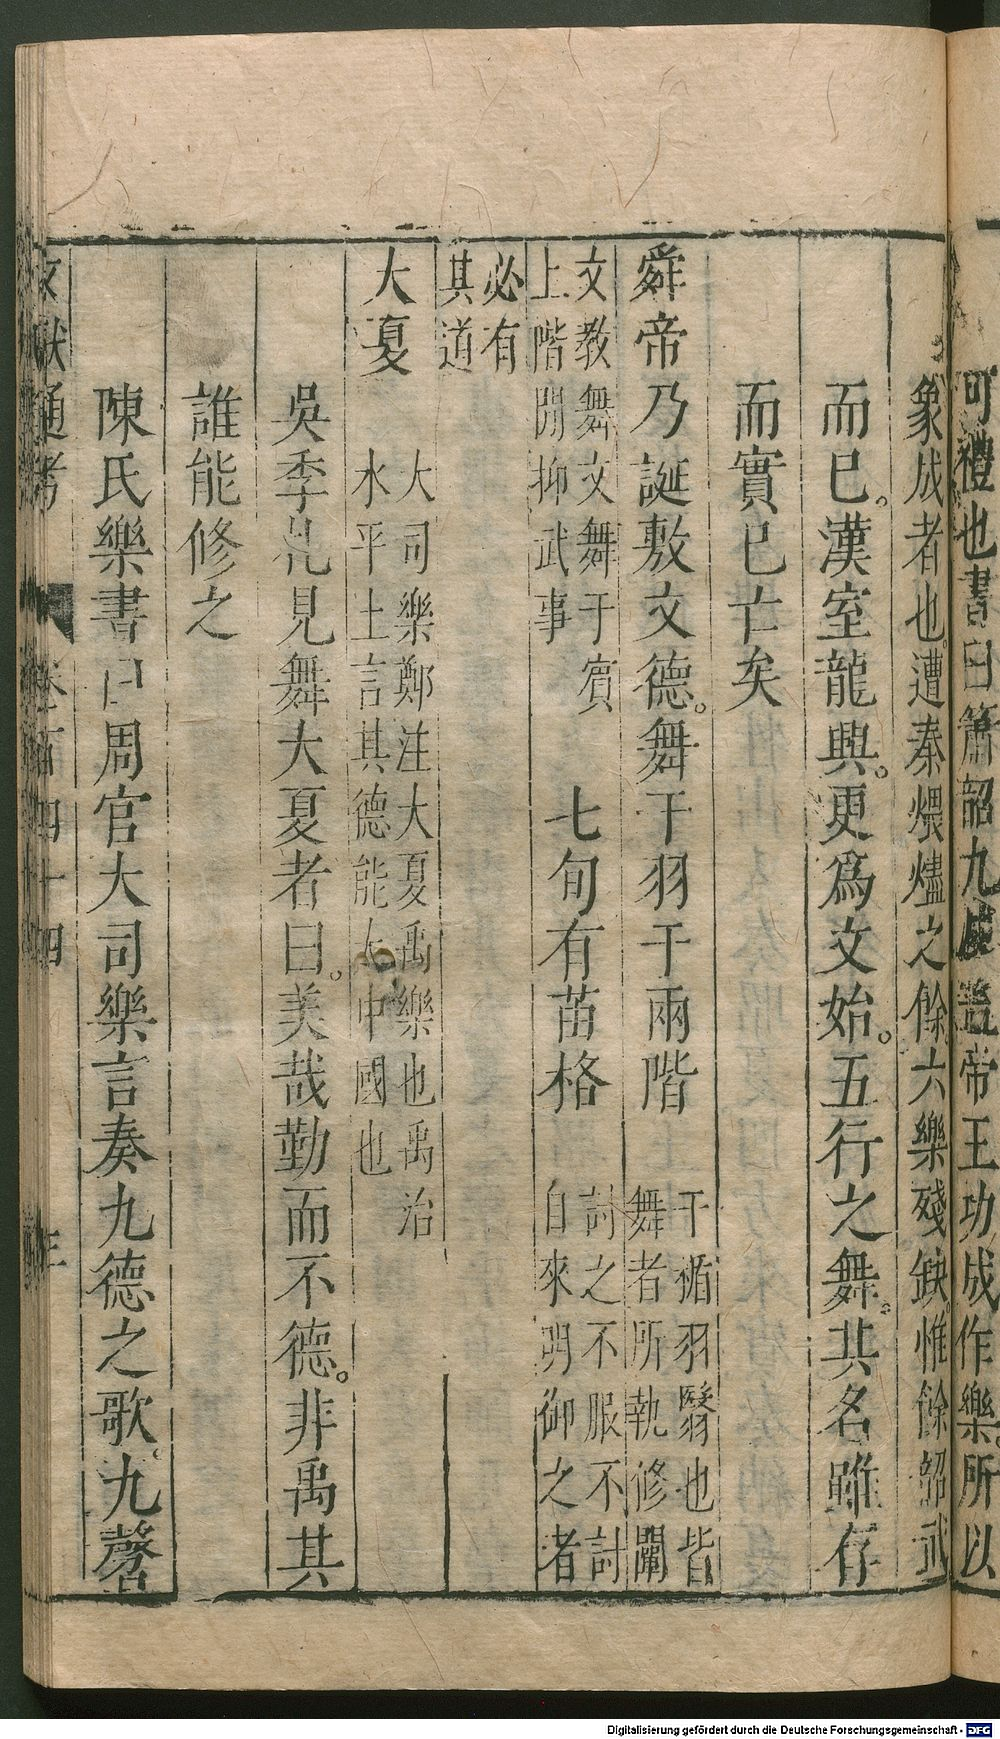 可禮也書曰簫韶九成葢帝王功成作樂所以
象成者也遭秦煨燼之餘六樂殘缺惟餘韶武
而巳漢室龍興更爲文始五行之舞其名雖存
而實已亡矣
舜帝乃誕敷文德舞干羽于兩階
干楯羽翳也皆
舞者所執修闡
文教舞文舞于賔
上階間抑武事
七旬有苗格
討之不服不討
自來明御之者
必有
其道
大夏
大司樂鄭注大夏禹樂也禹治
水平土言其德能大中國也
吳季札見舞大夏者曰美哉勤而不德非禹其
誰能修之
陳氏樂書曰周官大司樂言奏九德之歌九磬
文獻通考
卷百四十四
三
Digitalisierung gefördert durch die Deutsche Forschungsgemeinschaft - DFG